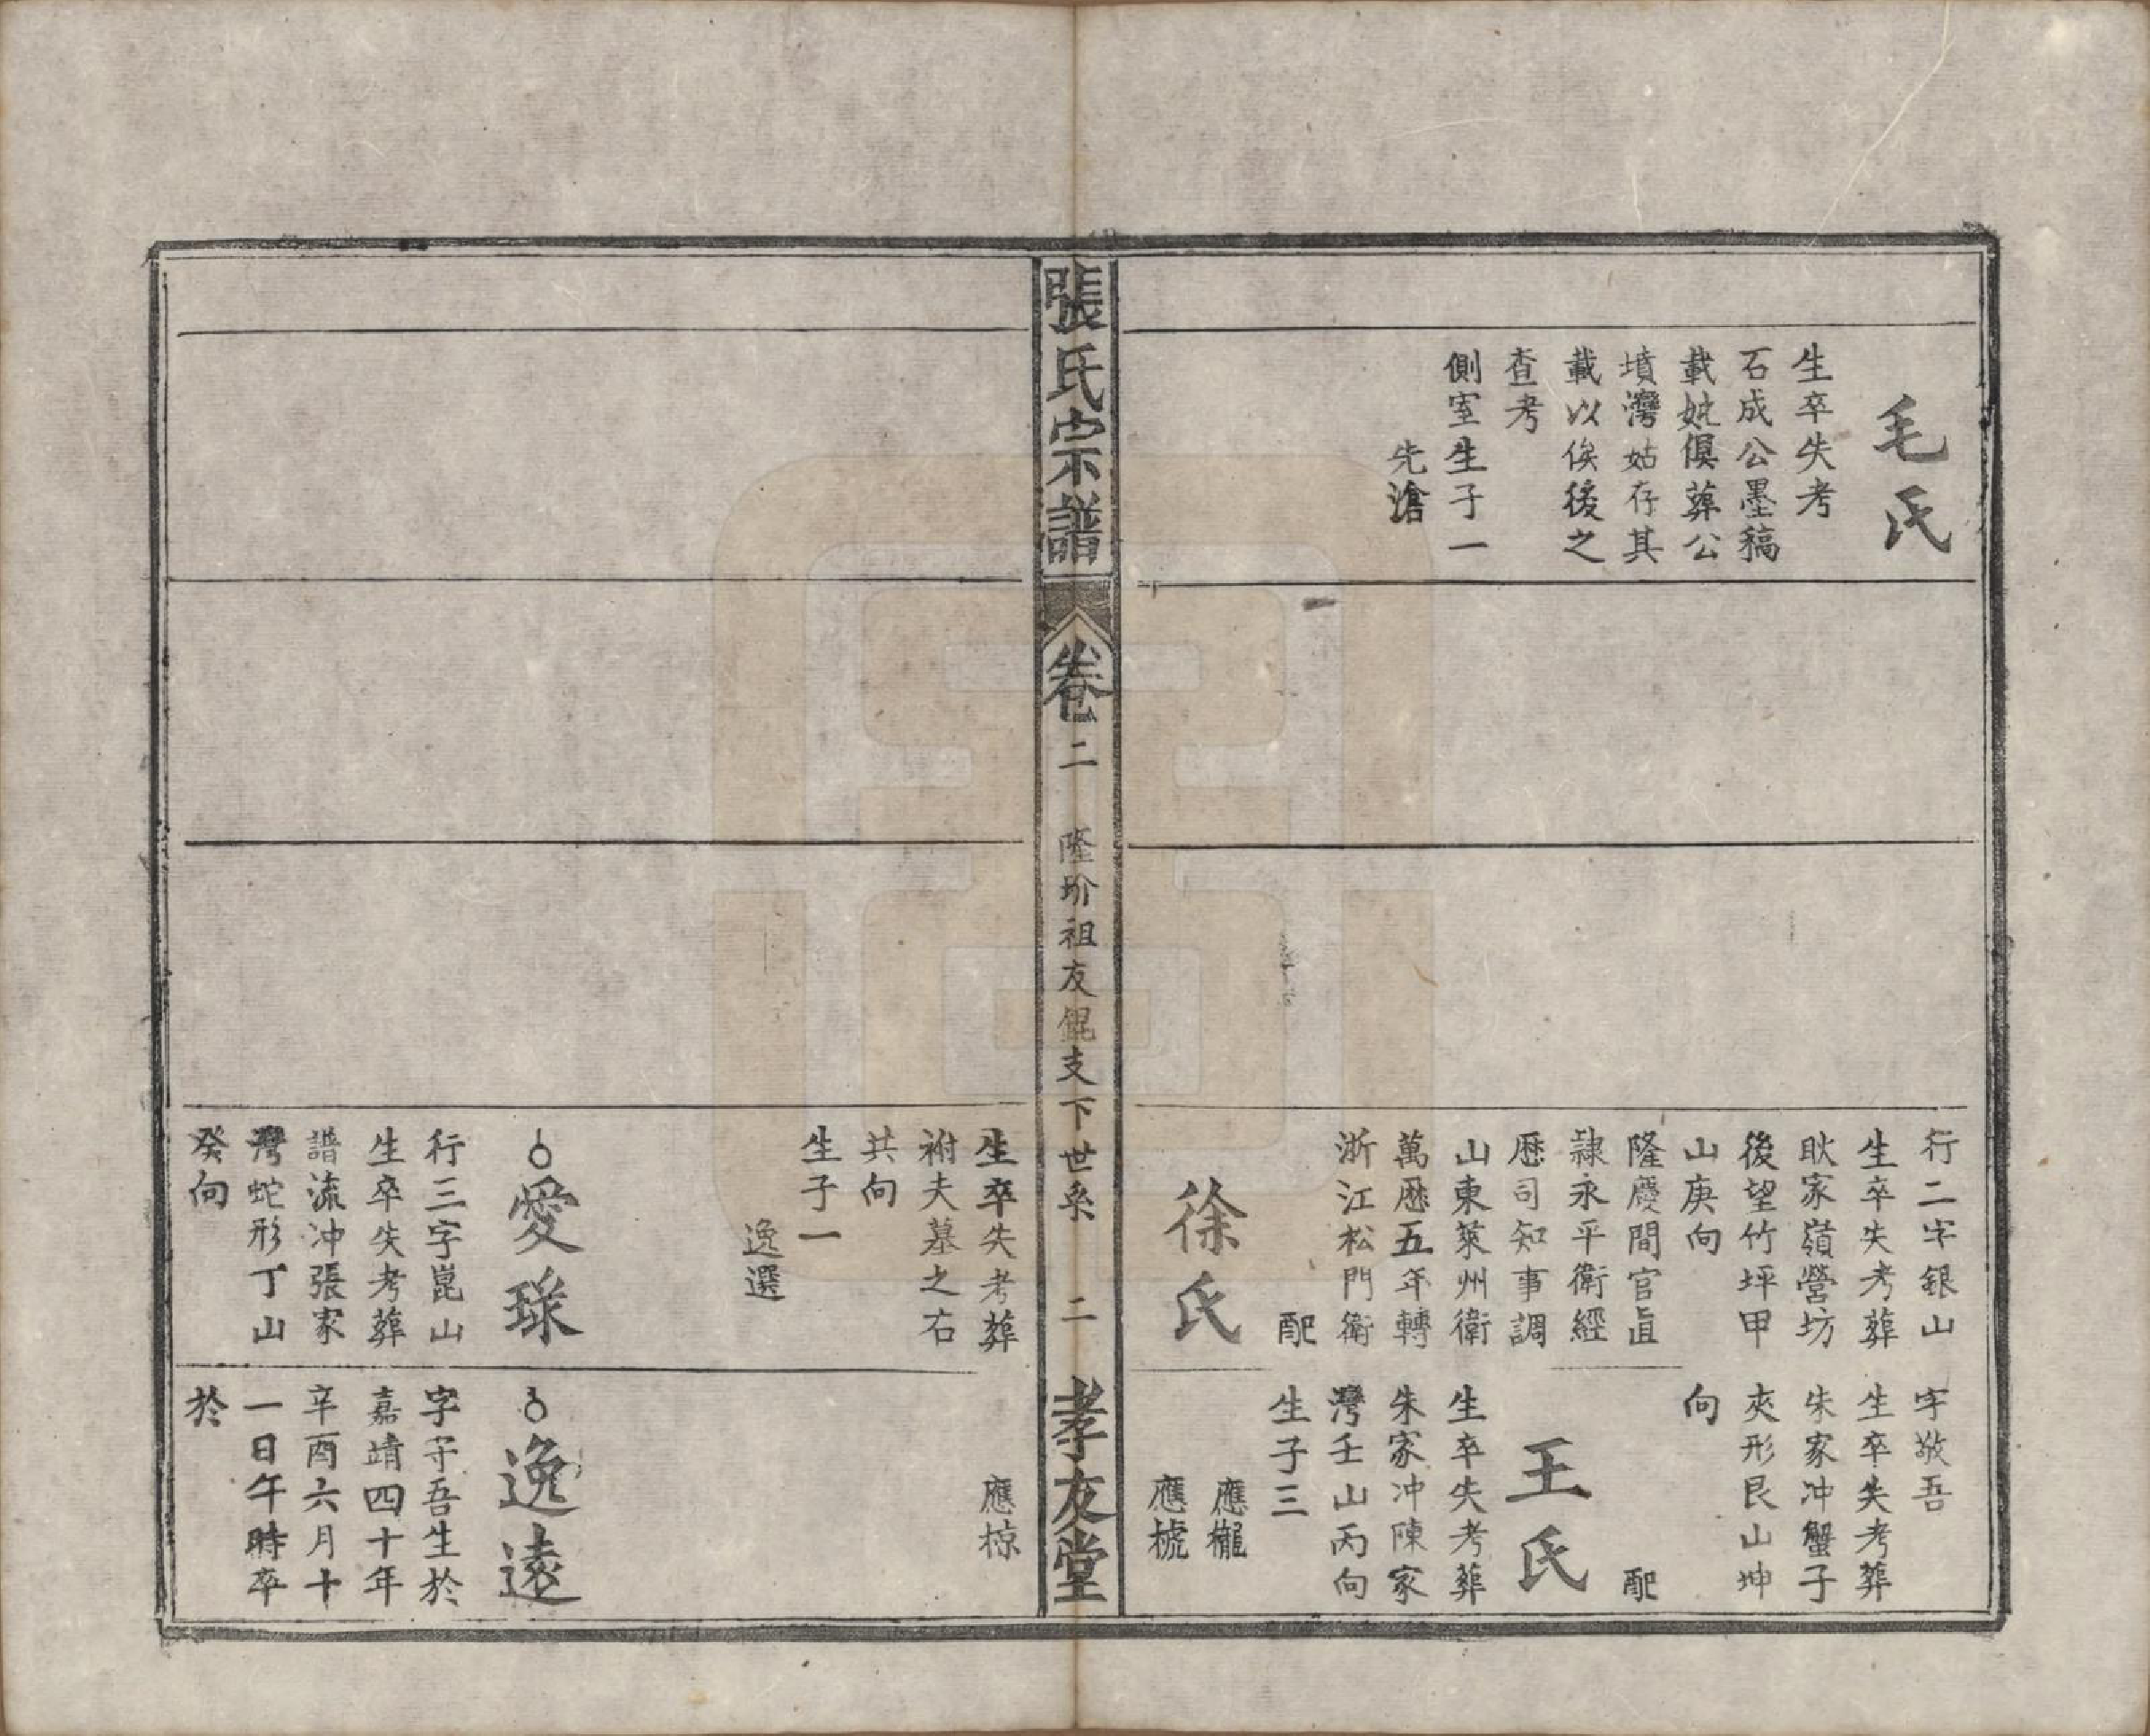 毛氏
生卒失考
石成公墨稿
載妣俱葬公
墳灣姑存其
載以俟後之
查考
側室生子一
先滄
行二字銀山
生卒失考葬
耿家嶺營坊
後望竹坪甲
山庚向
隆慶間官直
隸永平衛經
歷司知事調
山東萊州衛
萬歷五年轉
浙江松門衛
配
徐氏
字敬吾
生卒失考葬
朱家冲蟹子
夾形艮山坤
向
配
王氏
生卒失考葬
朱家冲陳家
灣壬山丙向
生子三
應櫳
應樕
張氏宗譜
卷二
隆玠祖友錕支下世系
二
孝友堂
生卒失考葬
祔夫墓之右
共向
生子一
逸選
愛瑔
行三字崑山
生卒失考葬
譜流冲張家
灣蛇形丁山
癸向
應椋
逸遠
字守吾生於
嘉靖四十年
辛酉六月十
一日午時卒
於